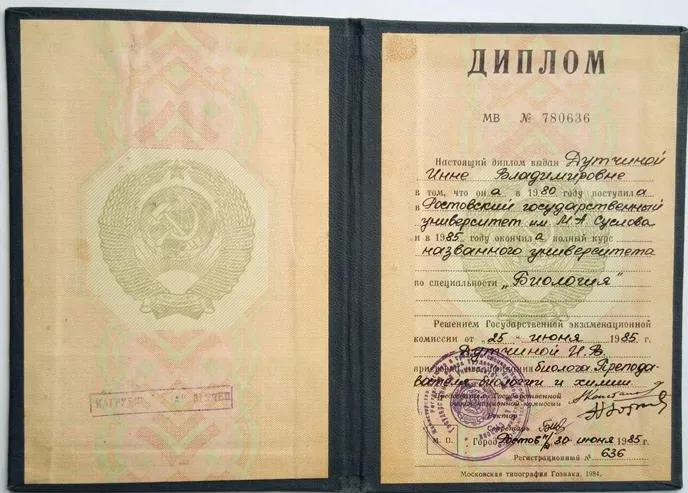 НАГРУДНЫЙ ЗНАК ВРУЧЕН
ДИПЛОМ
МВ № 780636
Настоящий диплом выдан Дутчиной
Инне Владимировне
в том, что она в 1980 году поступила
в Ростовский государственный
университет им. М.А. Суслова
и в 1985 году окончила полный курс
названного университета
по специальности „Биология"
Решением Государственной экзаменационной
комиссии от „25" июня 1985 г.
Дутчиной И.В.
квалификация биолога. Препода-
вателя биологии и химии
Председатель Государственной
экзаменационной комиссии
Ректор
Секретарь
М. П. Город Ростов н/Д 30 июня 1985 г.
Регистрационный № 636
Московская типография Гознака. 1984.